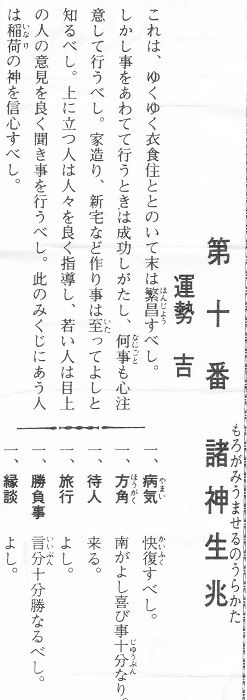 第十番 諸神生兆
もろがみうませるのうらかた
運勢 吉
これは、ゆくゆく衣食住ととのいて末は繁昌すべし。
しかし事をあわてて行うときは成功しがたし、何事も心注
意して行うべし。家造り、新宅など作り事は至ってよしと
知るべし。上に立つ人は人々を良く指導し、若い人は目上
の人の意見を良く聞き事を行うべし。此のみくじにあう人
は稲荷の神を信心すべし。
一、病気 快復すべし。
一、方角 南がよし喜び事十分なり。
一、待人 来る。
一、旅行 よし。
一、勝負事 言分十分勝なるべし。
一、縁談 よし。